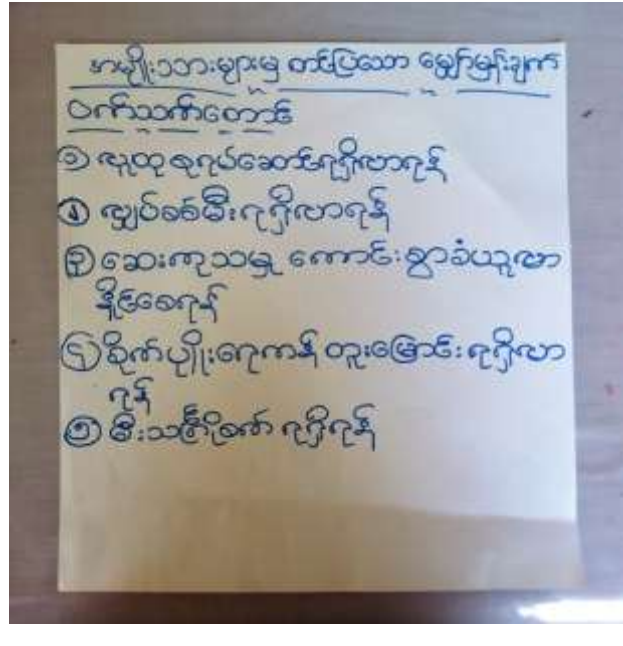 အမျိုးသားများမှ တင်ပြသော မျှော်မှန်းချက်
ဝက်သက်တောင်
၁ လူထု စုရပ်ဆောင်ရရှိလာရန်
၂ လျှပ်စစ်မီးရရှိလာရန်
၃ ဆေးကုသမှု ကောင်းစွာခံယူလာ
နိုင်စေရန်
၄ စိုက်ပျိုးရေကန် တူးမြောင်းရရှိလာ
ရန်
၅ မီးသတ်ဂိုဏ် ရရှိရန်